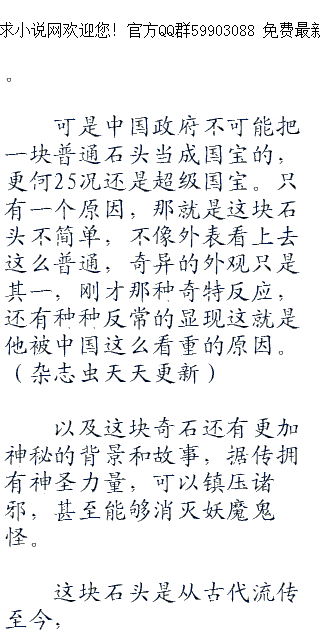 求小说网欢迎您! 官方QQ群59903088 免费最新
。
可是中国政府不可能把
一块普通石头当成国宝的，
更何25况还是超级国宝。只
有一个原因，那就是这块石
头不简单，不像外表看上去
这么普通，奇异的外观只是
其一，刚才那种奇特反应，
还有种种反常的显现这就是
他被中国这么看重的原因。
（杂志虫天天更新）
以及这块奇石还有更加
神秘的背景和故事，据传拥
有神圣力量，可以镇压诸
邪，甚至能够消灭妖魔鬼
怪。
这块石头是从古代流传
至今；